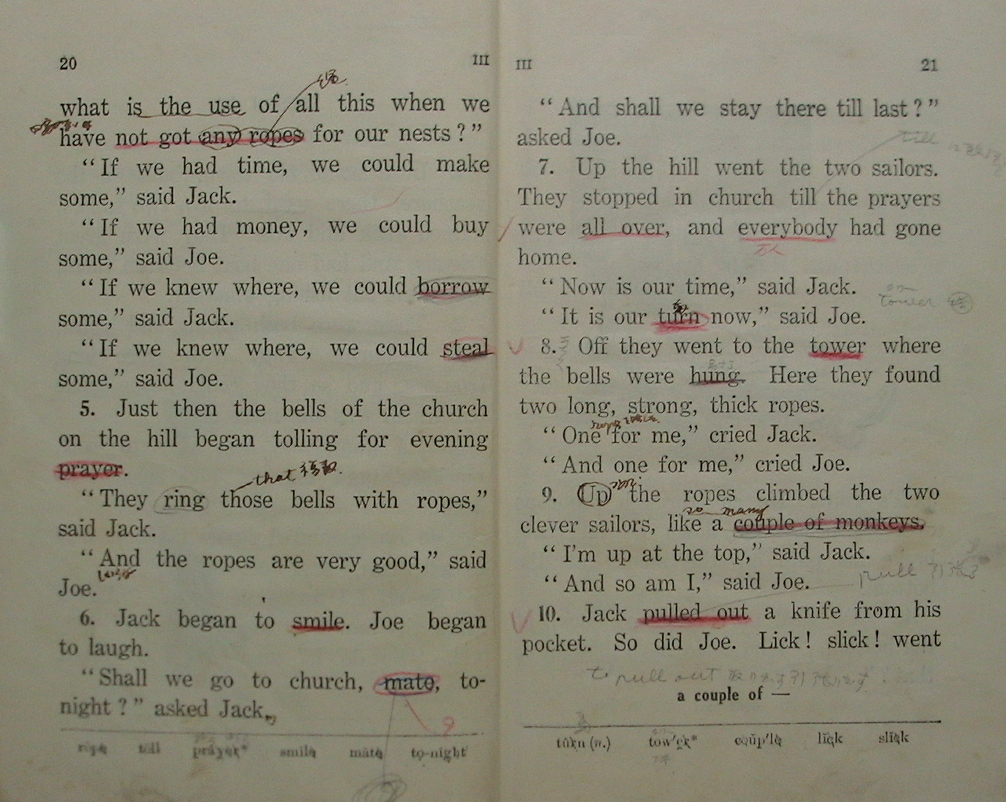 20
III
what is the use of all this when we
have not got any ropes for our nests?"
"If we had time, we could make
some," said Jack.
"If we had money, we could buy
some," said Joe.
"If we knew where, we could borrow
some," said Jack.
"If we knew where, we could steal
some," said Joe.
5. Just then the bells of the church
on the hill began tolling for evening
prayer.
that
"They ring those bells with ropes,"
said Jack.
"And the ropes are very good," said
Joe.
6. Jack began to smile. Joe began
to laugh.
"Shall we go to church, mate, to-
night?" asked Jack.
rope toll prayer* smile mate to-night
III
21
"And shall we stay there till last?"
asked Joe.
till
7. Up the hill went the two sailors.
They stopped in church till the prayers
were all over, and everybody had gone
home.
"Now is our time," said Jack.
tower
"It is our turn now," said Joe.
8. Off they went to the tower where
the bells were hung. Here they found
two long, strong, thick ropes.
"One for me," cried Jack.
"And one for me," cried Joe.
9. Up the ropes climbed the two
so many
clever sailors, like a couple of monkeys.
"I'm up at the top," said Jack.
"And so am I," said Joe.
pull
10. Jack pulled out a knife from his
pocket. So did Joe. Lick! slick! went
to pull out
a couple of —
tûrn (n.) tow'er* coŭp'le lĭck slĭck